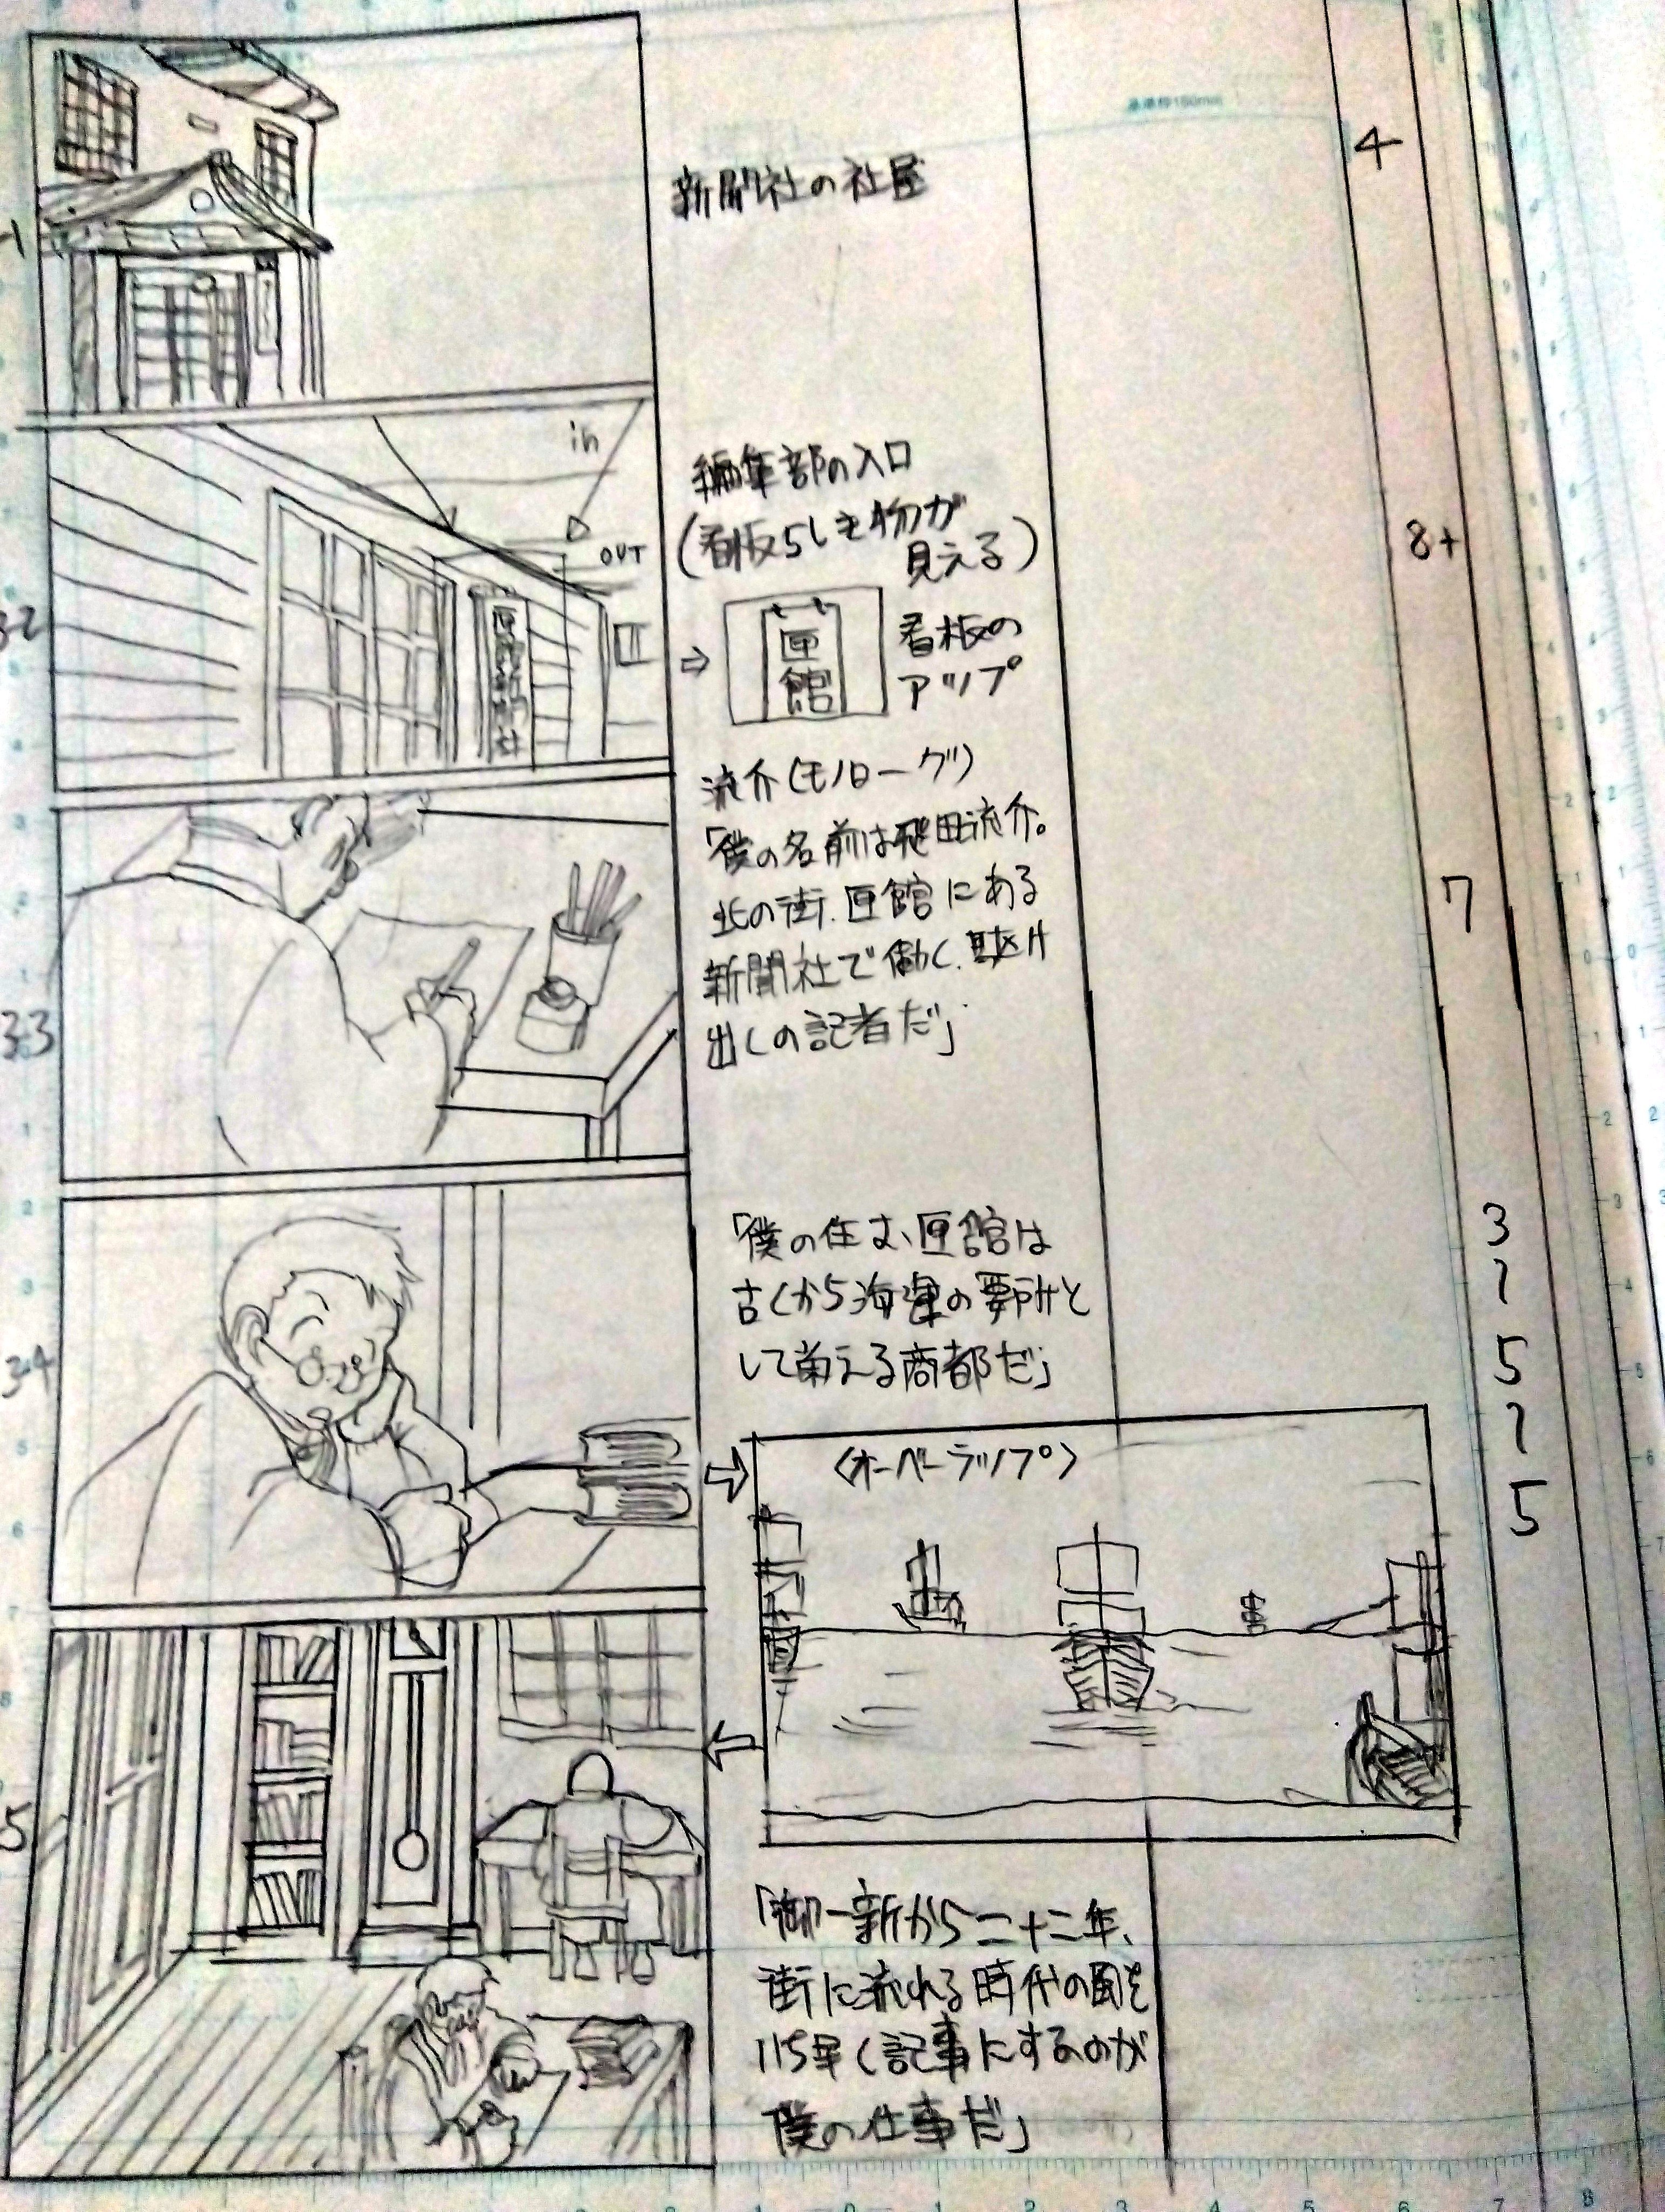 基準枠150mm
3-1
新聞社の社屋
4
3-2
in
OUT
匣館新聞社
編集部の入口
(看板らしき物が
見える)
匣館
看板の
アップ
8+
3-3
流介(モノローグ)
「僕の名前は飛田流介。
北の街、匣館にある
新聞社で働く、駆け
出しの記者だ」
7
3-4
「僕の住む、匣館は
古くから海運の要所と
して栄える商都だ」
3
〜
5
〜
5
〈オーバーラップ〉
5
「御一新から二十二年、
街に流れる時代の風を
いち早く記事にするのが
僕の仕事だ」